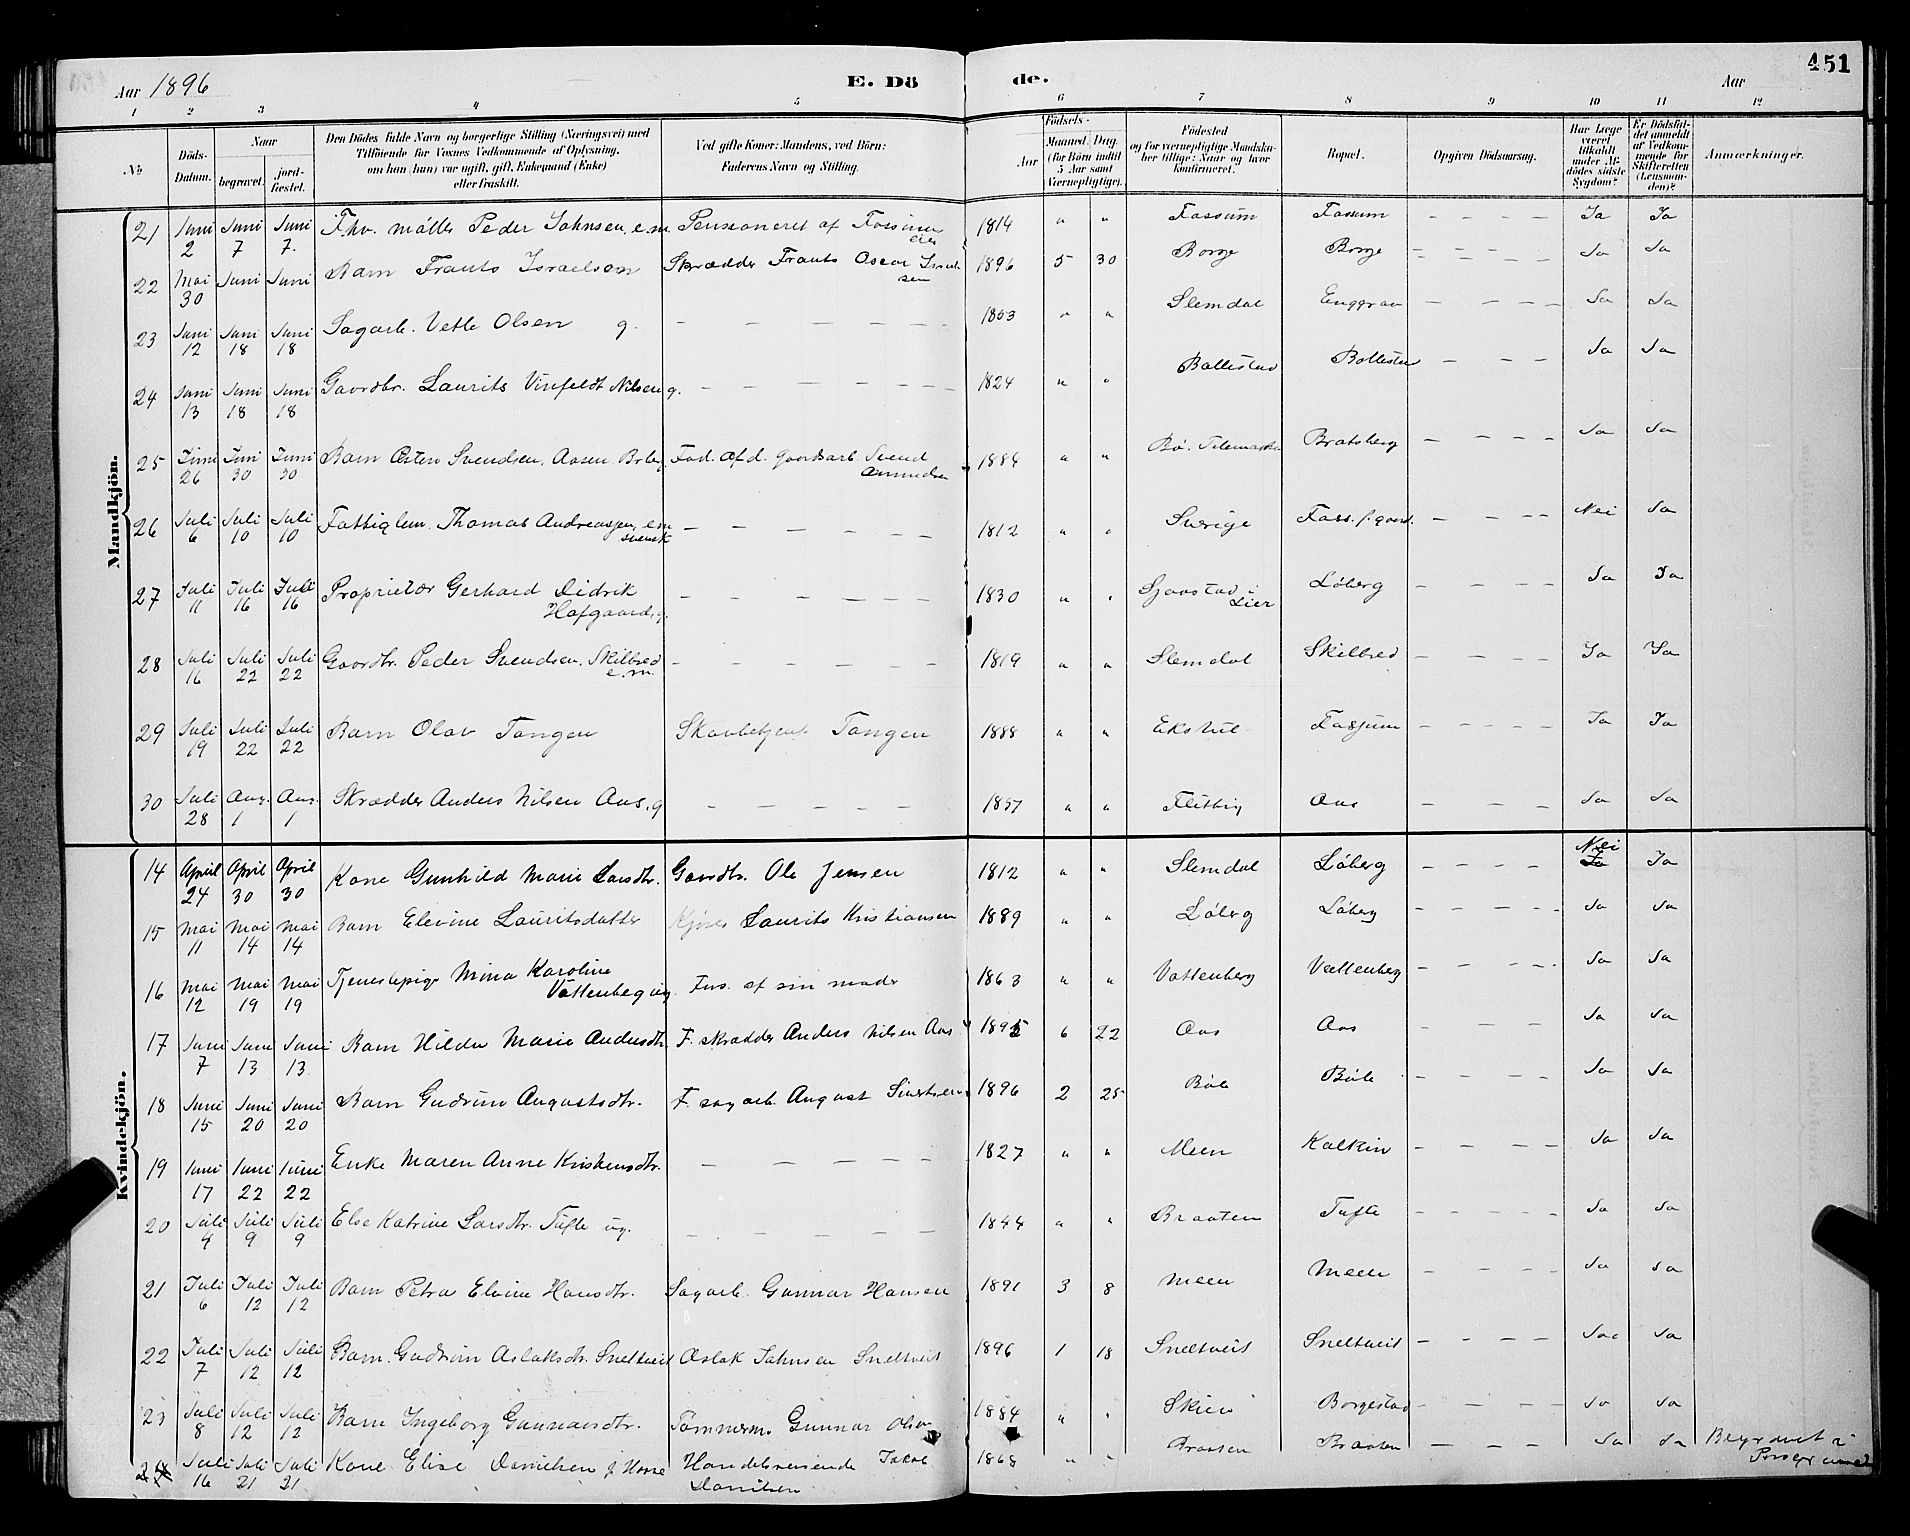 Aar 1896 E. Dö de. Aar 451
1 2 3 4 5 6 7 8 9 10 11 12
No Döds-Datum. Naar begravet. jord-fæstet. Den Dödes fulde Navn og borgerlige Stilling (Næringsvei) med Tilföiende for Voxnes Vedkommende af Oplysning, om han (hun) var ugift, gift, Enkemand (Enke) eller fraskilt. Ved gifte Koner: Mandens, ved Börn: Faderens Navn og Stilling. Födsels- Aar Maaned. Dag. (for Börn indtil 5 Aar samt Værnepligtige). Födested og for værnepligtige Mandskaber tillige: Naar og hvor konfirmeret. Bopæl. Opgiven Dödsaarsag. Har Læge været tilkaldt under Afdödes sidste Sygdom? Er Dödsfaldet anmeldt af Vedkommende for Skifteretten (Lensmanden)? Anmærkninger.
Mandkjön.
21 Juni 2 Juni 7 Juni 7. Fhv. møller Peder Johnsen, e.m. Pensioneret af Fossum 1814 " " Fossum Fossum – – – – Ja Ja
22 Mai 30 Juni Juni Barn Frants Israelsen Skrædder Frants Oscar Israelsen 1896 5 30 Borge Borge – – – – Ja Ja
23 Juni 12 Juni 18 Juni 18 Sagarb. Vetle Olsen g. – – – – – – 1853 " " Slemdal Enggrav – – – – Ja Ja
24 Juni 13 Juni 18 Juni 18 Gaardbr. Laurits Vinfeldt Nilsen g. – – – – – – 1824 " " Bollestad Bollestad – – – – Ja Ja
25 Juni 26 Juni 30 Juni 30 Barn Østen Svendsen, Aasen Fad. afd. gaardarb Svend Amundsen 1884 " " Bø. Telemarken Bratsberg – – – – Ja Ja
26 Juli 6 Juli 10 Juli 10 Fattiglem. Thomas Andreassen, e.m svensk – – – – – 1812 " " Sverige Foss. f. gaard. – – – – Nei Ja
27 Juli 11 Juli 16 Juli 16 Proprietær Gerhard Didrik Hofgaard, g. – – – – – – 1830 " " Sjaastad i Lier Løberg – – – – Ja Ja
28 Juli 16 Juli 22 Juli 22 Gaardbr. Peder Svendsen, Skilbred e.m. – – – – – – 1819 " " Slemdal Skilbred – – – – Ja Ja
29 Juli 19 Juli 22 Juli 22 Barn Olav Tangen Skovbetjent Tangen 1888 " " Fossum – – – – Ja Ja
30 Juli 28 Aug. 1 Aug. 1 Skrædder Anders Nilsen Aas, g – – – – – 1857 " " Flittig Aas – – – Ja Ja
Kvindekjön.
14 April 24 April 30 April 30 Kone Gunhild Marie Larsdtr. Gaardbr. Ole Jensen 1812 " " Slemdal Løberg – – – – Nei Ja Ja
15 Mai 11 Mai 14 Mai 14 Barn Elevine Lauritsdatter Laurits Kristiansen 1889 " " Løberg Løberg – – – – Ja Ja
16 Mai 12 Mai 19 Mai 19 Tjenestepige Mina Karoline Vattenberg ug. Fors. af sin moder 1863 " " Vattenberg Vattenberg – – – – Ja Ja
17 Juni 7 Juni 13 Juni 13. Barn Hilda Marie Andersdtr. F. skrædder Anders Nilsen Aas 1895 6 22 Aas Aas – – – Ja Ja
18 Juni 15 Juni 20 Juni 20 Barn Gudrun Augustsdtr. F. sagarb. August Sivertsen 1896 2 25 Bøle Bøle – – – – Ja Ja
19 Juni 17 Juni 22 Juni 22 Enke Maren Anne Kristensdtr. – – – – – 1827 " " Meen Kalkin – – – – Ja Ja
20 Juli 4 Juli 9 Juli 9 Else Katrine Larsdtr. Tufte ug. – – – – – 1844 " " Braaten Tufte – – – – – Ja Ja
21 Juli 6 Juli 12 Juli 12 Barn Petra Elvine Hansdtr. Sagarb. Gunnar Hansen 1891 3 8 Meen Meen – – – – Ja Ja
22 Juli 7 Juli 12 Juli 12 Barn. Gudrun Aslaksdtr. Sneltveit Aslak Johnsen Sneltveit 1896 1 18 Sneltveit Sneltveit – – – – Ja Ja
23 Juli 8 Juli 12 Juli 12 Barn Ingeborg Gunnarsdtr. Tømmerm. Gunnar Olsen 1884 " " Skien Borgestad – – – – Ja Ja
24 Juli 16 Juli 21 Juli 21 Kone Elise Danielsen f. Handelsreisende Jakob Danielsen 1868 " " Braaten Braaten – – – – Ja Ja Begravet i Porsgrund